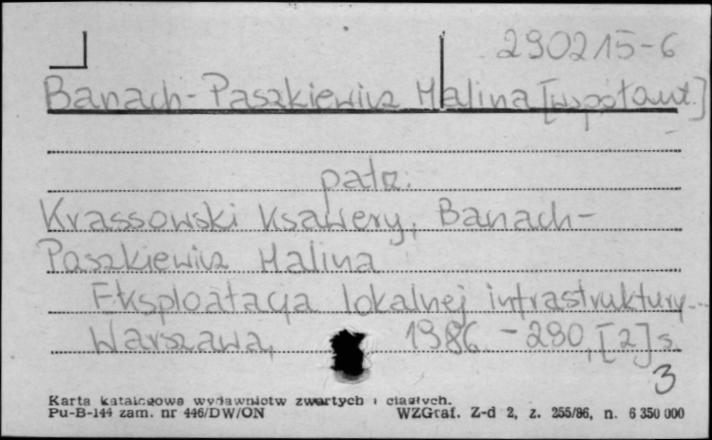 290215-6
Banach-Paszkiewicz Halina [współaut.]
patrz.
Krassowski Ksawery, Banach-
Paszkiewicz Halina
Eksploatacja lokalnej infrastruktury...
Warszawa, 1986. - 290, [2] s.
3
Karta katalogowa wydawnictw zwartych i ciągłych.
Pu-B-144 zam. nr 446/DW/ON WZGraf. Z-d 2, z. 255/86, n. 6 350 000